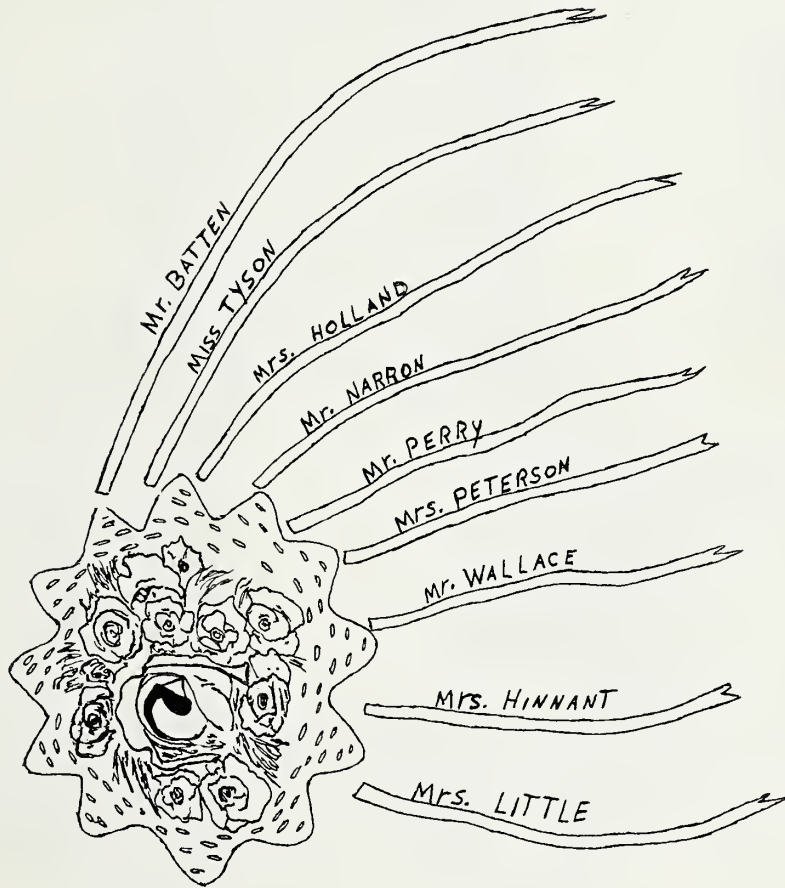 Mr. BATTEN
MISS TYSON
Mrs. HOLLAND
Mr. NARRON
Mr. PERRY
Mrs. PETERSON
Mr. WALLACE
Mrs. HINNANT
Mrs. LITTLE